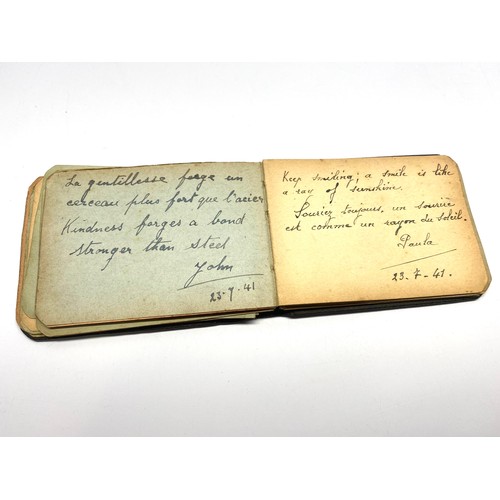 La gentillesse forge un
cerceau plus fort que l'acier
Kindness forges a bond
stronger than steel
John
23-7.41
Keep smiling; a smile is like
a ray of sunshine.
Souriez toujours, un sourire
est comme un rayon du soleil.
Paula
23-7-41.